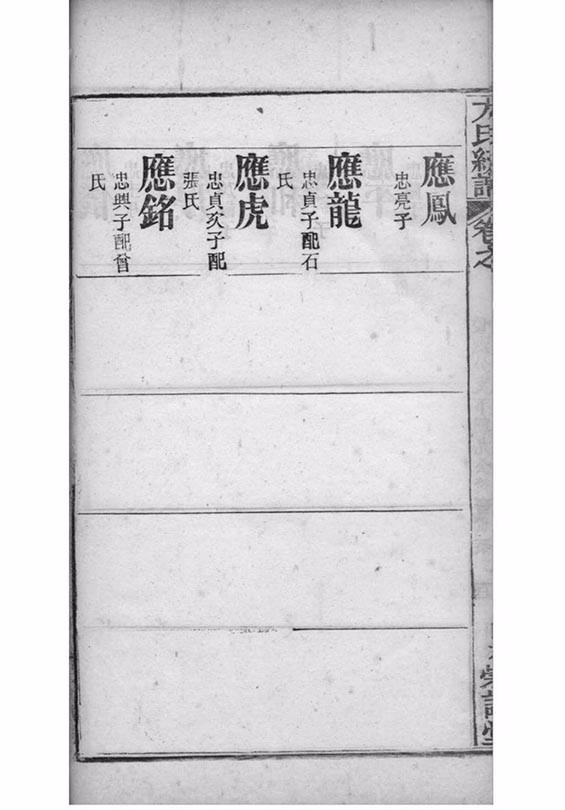 卷之
應鳳
忠亮子
應龍
忠貞子配石
氏
應虎
忠貞次子配
張氏
應銘
忠興子配曾
氏